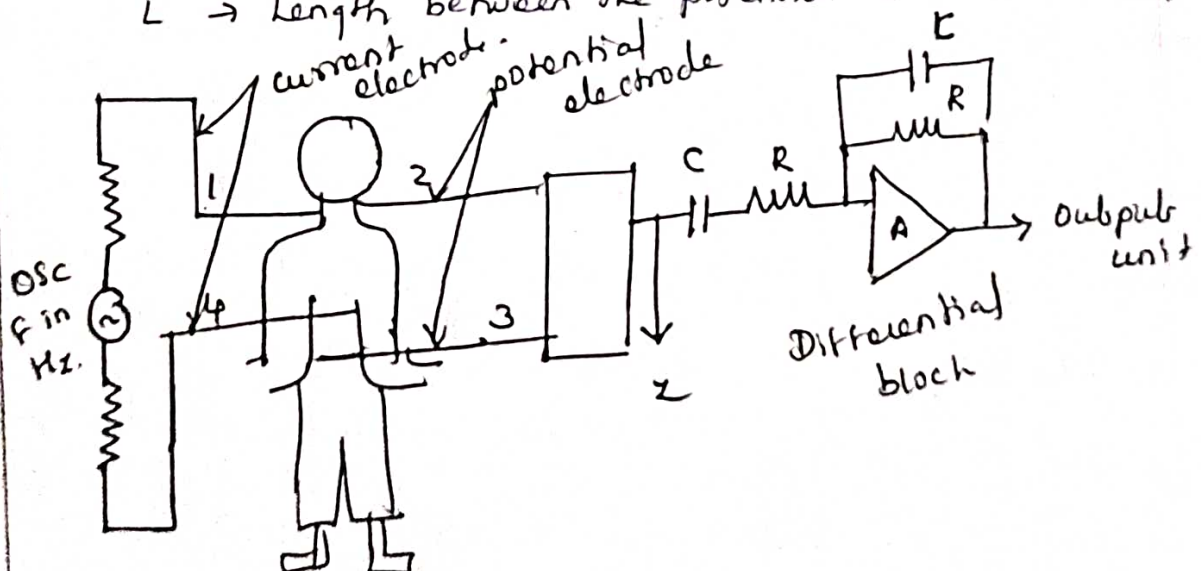 L → Length between the
current
electrode.
potential
electrode
C
R
1
2
C
R
A
Output
unit
OSC
f in
Hz.
4
3
Z
Differential
block